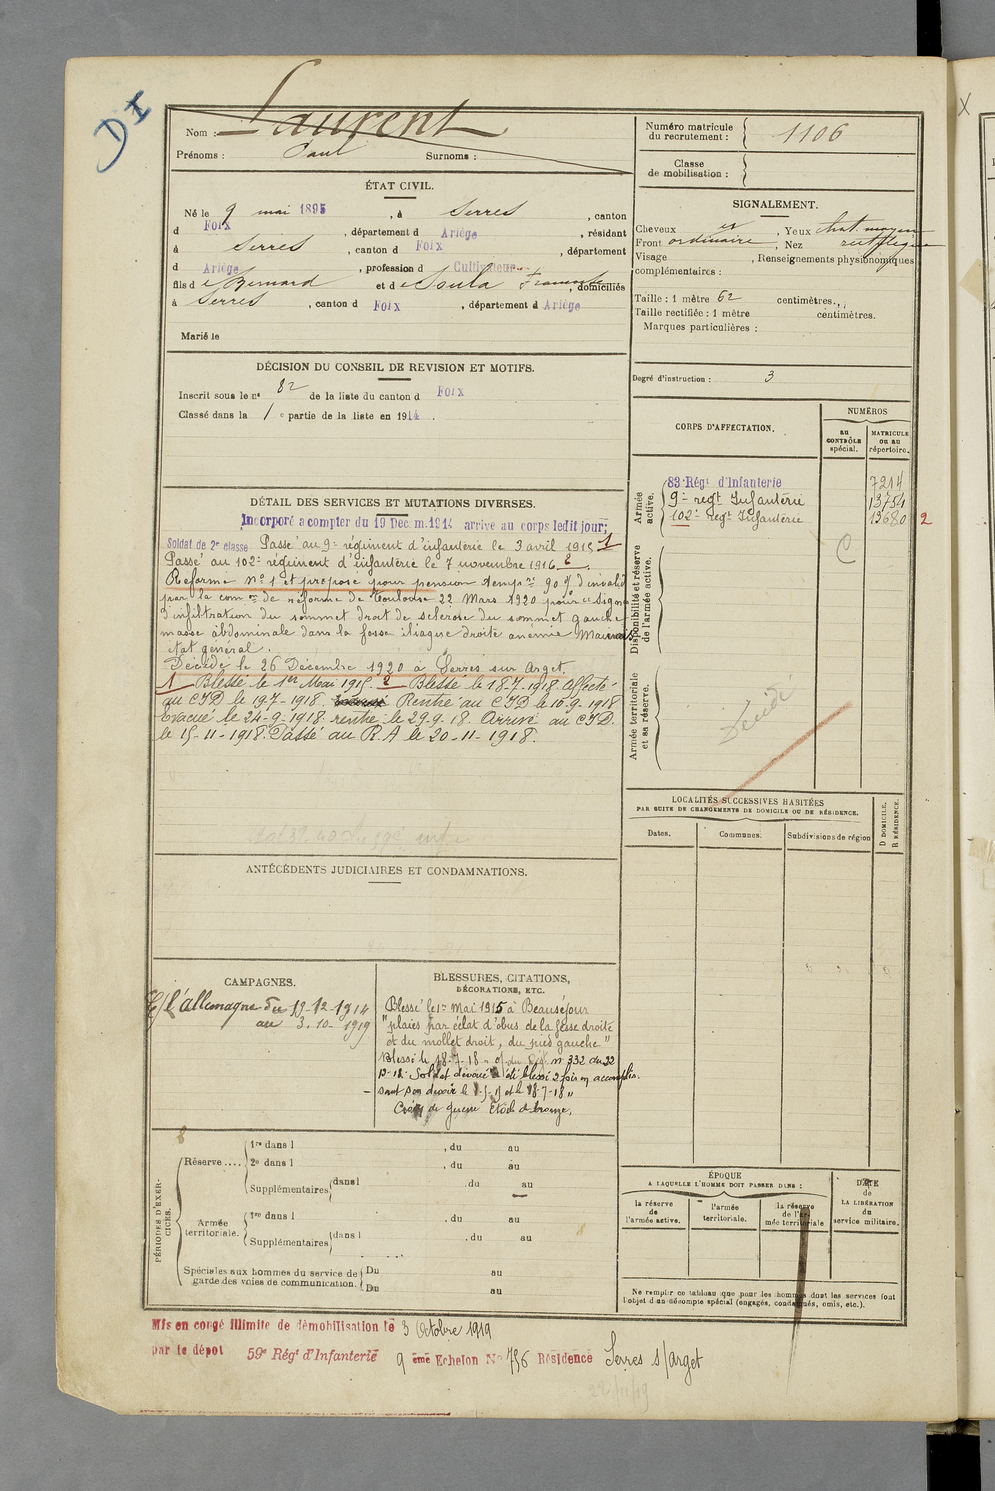 DI
Nom : Laurent
Prénoms : Paul Surnoms :
Numéro matricule du recrutement : 1106
Classe de mobilisation :
ÉTAT CIVIL.
Né le 9 mai 1895, à Serres, canton
d Foix, département d Ariège, résidant
à Serres, canton d Foix, département
d Ariège, profession d Cultivateur
fils de Bernard et de Soula, domiciliés
à Serres, canton d Foix, département d Ariège
Marié le
SIGNALEMENT.
Cheveux et, Yeux chat. moyen
Front ordinaire, Nez rectiligne
Visage, Renseignements physionomiques
complémentaires :
Taille : 1 mètre 62 centimètres.
Taille rectifiée : 1 mètre centimètres.
Marques particulières :
Degré d'instruction : 3
DÉCISION DU CONSEIL DE REVISION ET MOTIFS.
Inscrit sous le n° 82 de la liste du canton d Foix
Classé dans la 1e partie de la liste en 1914.
CORPS D'AFFECTATION.
NUMÉROS
au CONTRÔLE spécial.
MATRICULE ou au répertoire.
Armée active.
83e Régt d'Infanterie 7214
9e regt Infanterie 13754
102e regt Infanterie 13680 2
Disponibilité et réserve de l'armée active.
Armée territoriale et sa réserve.
Décédé
DÉTAIL DES SERVICES ET MUTATIONS DIVERSES.
Incorporé a compter du 19 Dec.m.1914 arrivé au corps ledit jour;
Soldat de 2e classe Passé au 9e régiment d'infanterie le 3 avril 1915 1
Passé au 102e régiment d'infanterie le 7 novembre 1916. 2
Réformé n° 1 et proposé pour pension temp re 90 % d'invalid
par la com on de réforme de Toulouse 22 Mars 1920 pour "Signes
d'infiltration du sommet droit de sclérose du sommet gauche
masse abdominale dans la fosse iliaque droite anémie Mauvais
état général.
Décédé le 26 Décembre 1920 à Serres sur Arget.
1 Blessé le 1er Mai 1915. 2 Blessé le 18-7-1918. Affecté
au CID le 19-7-1918. Rentré au CID le 10-9-1918
Evacué le 24-9-1918 rentré le 29.9.18. Arrivé au CID.
le 15-11-1918. Passé au R.A le 20-11-1918.
LOCALITÉS SUCCESSIVES HABITÉES
PAR SUITE DE CHANGEMENTS DE DOMICILE OU DE RÉSIDENCE.
Dates. Communes. Subdivisions de région D DOMICILE. R RÉSIDENCE.
ANTÉCÉDENTS JUDICIAIRES ET CONDAMNATIONS.
CAMPAGNES.
C/ l'allemagne du 19-12-1914
au 3-10-1919
BLESSURES, CITATIONS,
DÉCORATIONS, ETC.
Blessé le 1er mai 1915 à Beauséjour
"plaies par éclat d'obus de la fesse droite
et du mollet droit, du pied gauche"
Blessé le 18-7-18 - n° 332 du 22
Soldat dévoué a été blessé 2 fois en accomplis
sant son devoir le 1-5-15 et le 18-7-18"
Croix de guerre Etoile de bronze.
PÉRIODES D'EXERCICES.
Réserve .... 1re dans l, du au
2e dans l, du au
Supplémentaires dans l, du au
Armée territoriale. 1re dans l, du au
Supplémentaires dans l, du au
Spéciales aux hommes du service de garde des voies de communication. Du au
Du au
ÉPOQUE
A LAQUELLE L'HOMME DOIT PASSER DANS :
la réserve de l'armée active. l'armée territoriale. la réserve de l'armée territoriale
DATE de LA LIBÉRATION du service militaire.
Ne remplir ce tableau que pour les hommes dont les services font
l'objet d'un décompte spécial (engagés, condamnés, omis, etc.).
Mis en congé illimité de démobilisation le 3 Octobre 1919
par le dépôt 59e Régt d'Infanterie 9 ème Echelon N° 756 Résidence Serres s/Arget